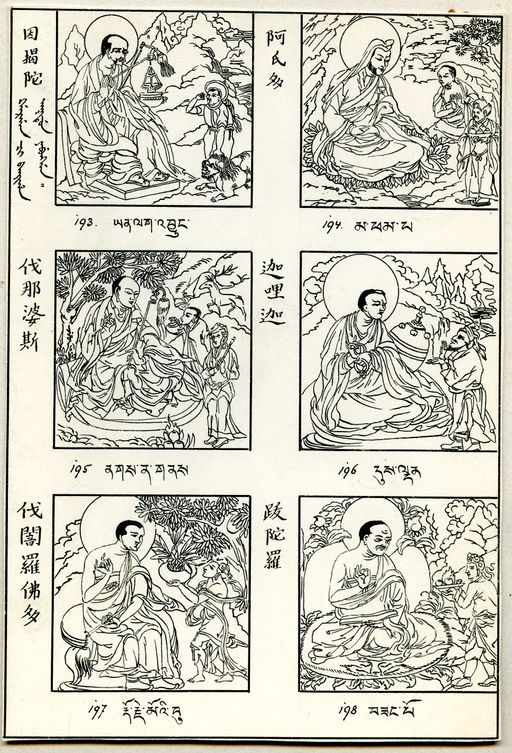 因揭陀
193. ཡན་ལག་འབྱུང་
阿氏多
194. མ་ཕམ་པ
伐那婆斯
195 ནགས་ན་གནས
迦哩迦
196 དུས་ལྡན
伐闍羅佛多
197 རྡོ་རྗེ་མོའི་བུ
跋陀羅
198 བཟང་པོ